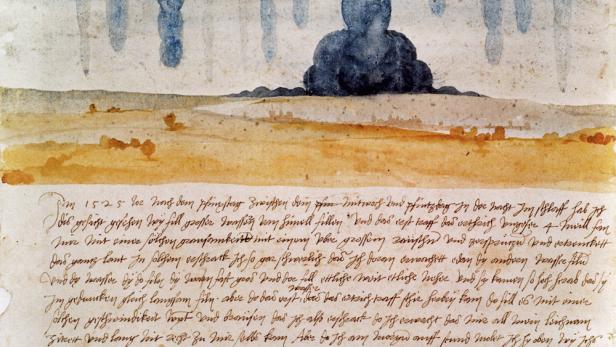 Im 1525 Jor noch dem pfinxstag zwischen dem pfin mitwoch und pfintzdag in der nacht im schlaff hab ich
dis gesicht gesehen wy fill grosser wassern vom himell fillen Und das erst traff das erthrich ungefer 4 meill fan
mir mit einer solchen grausamkeitt mit einem uber grossem raüschn und zersprützn und ertrenckett
das gantz lant In solchem erschrack ich so gar schwerlich das ich doran erwachett e dan dy andern wasser filn
und dy wasser dy do filn dy warn fast gros und der fill ettliche weit etliche neher und sy kamen so hoch herab das sy
im gedancken gleich langsam filn. aber do das erst wasser das das ertrich traff schir herbey kam do fill es mit einer
solchen geschwindikeit wynt und braüsen das ich also erschrack do ich erwacht das mir all mein leichnam
zitrett und lang nit recht zu mir selbs kam Aber do ich am morgen auff stund molet ich hy oben wy ichs